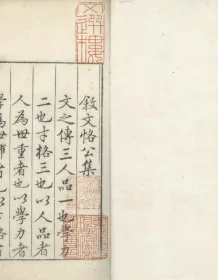 敘文恪公集
文之傳三人品一也學力
二也才格三也以人品者
人為世重者也以學力者